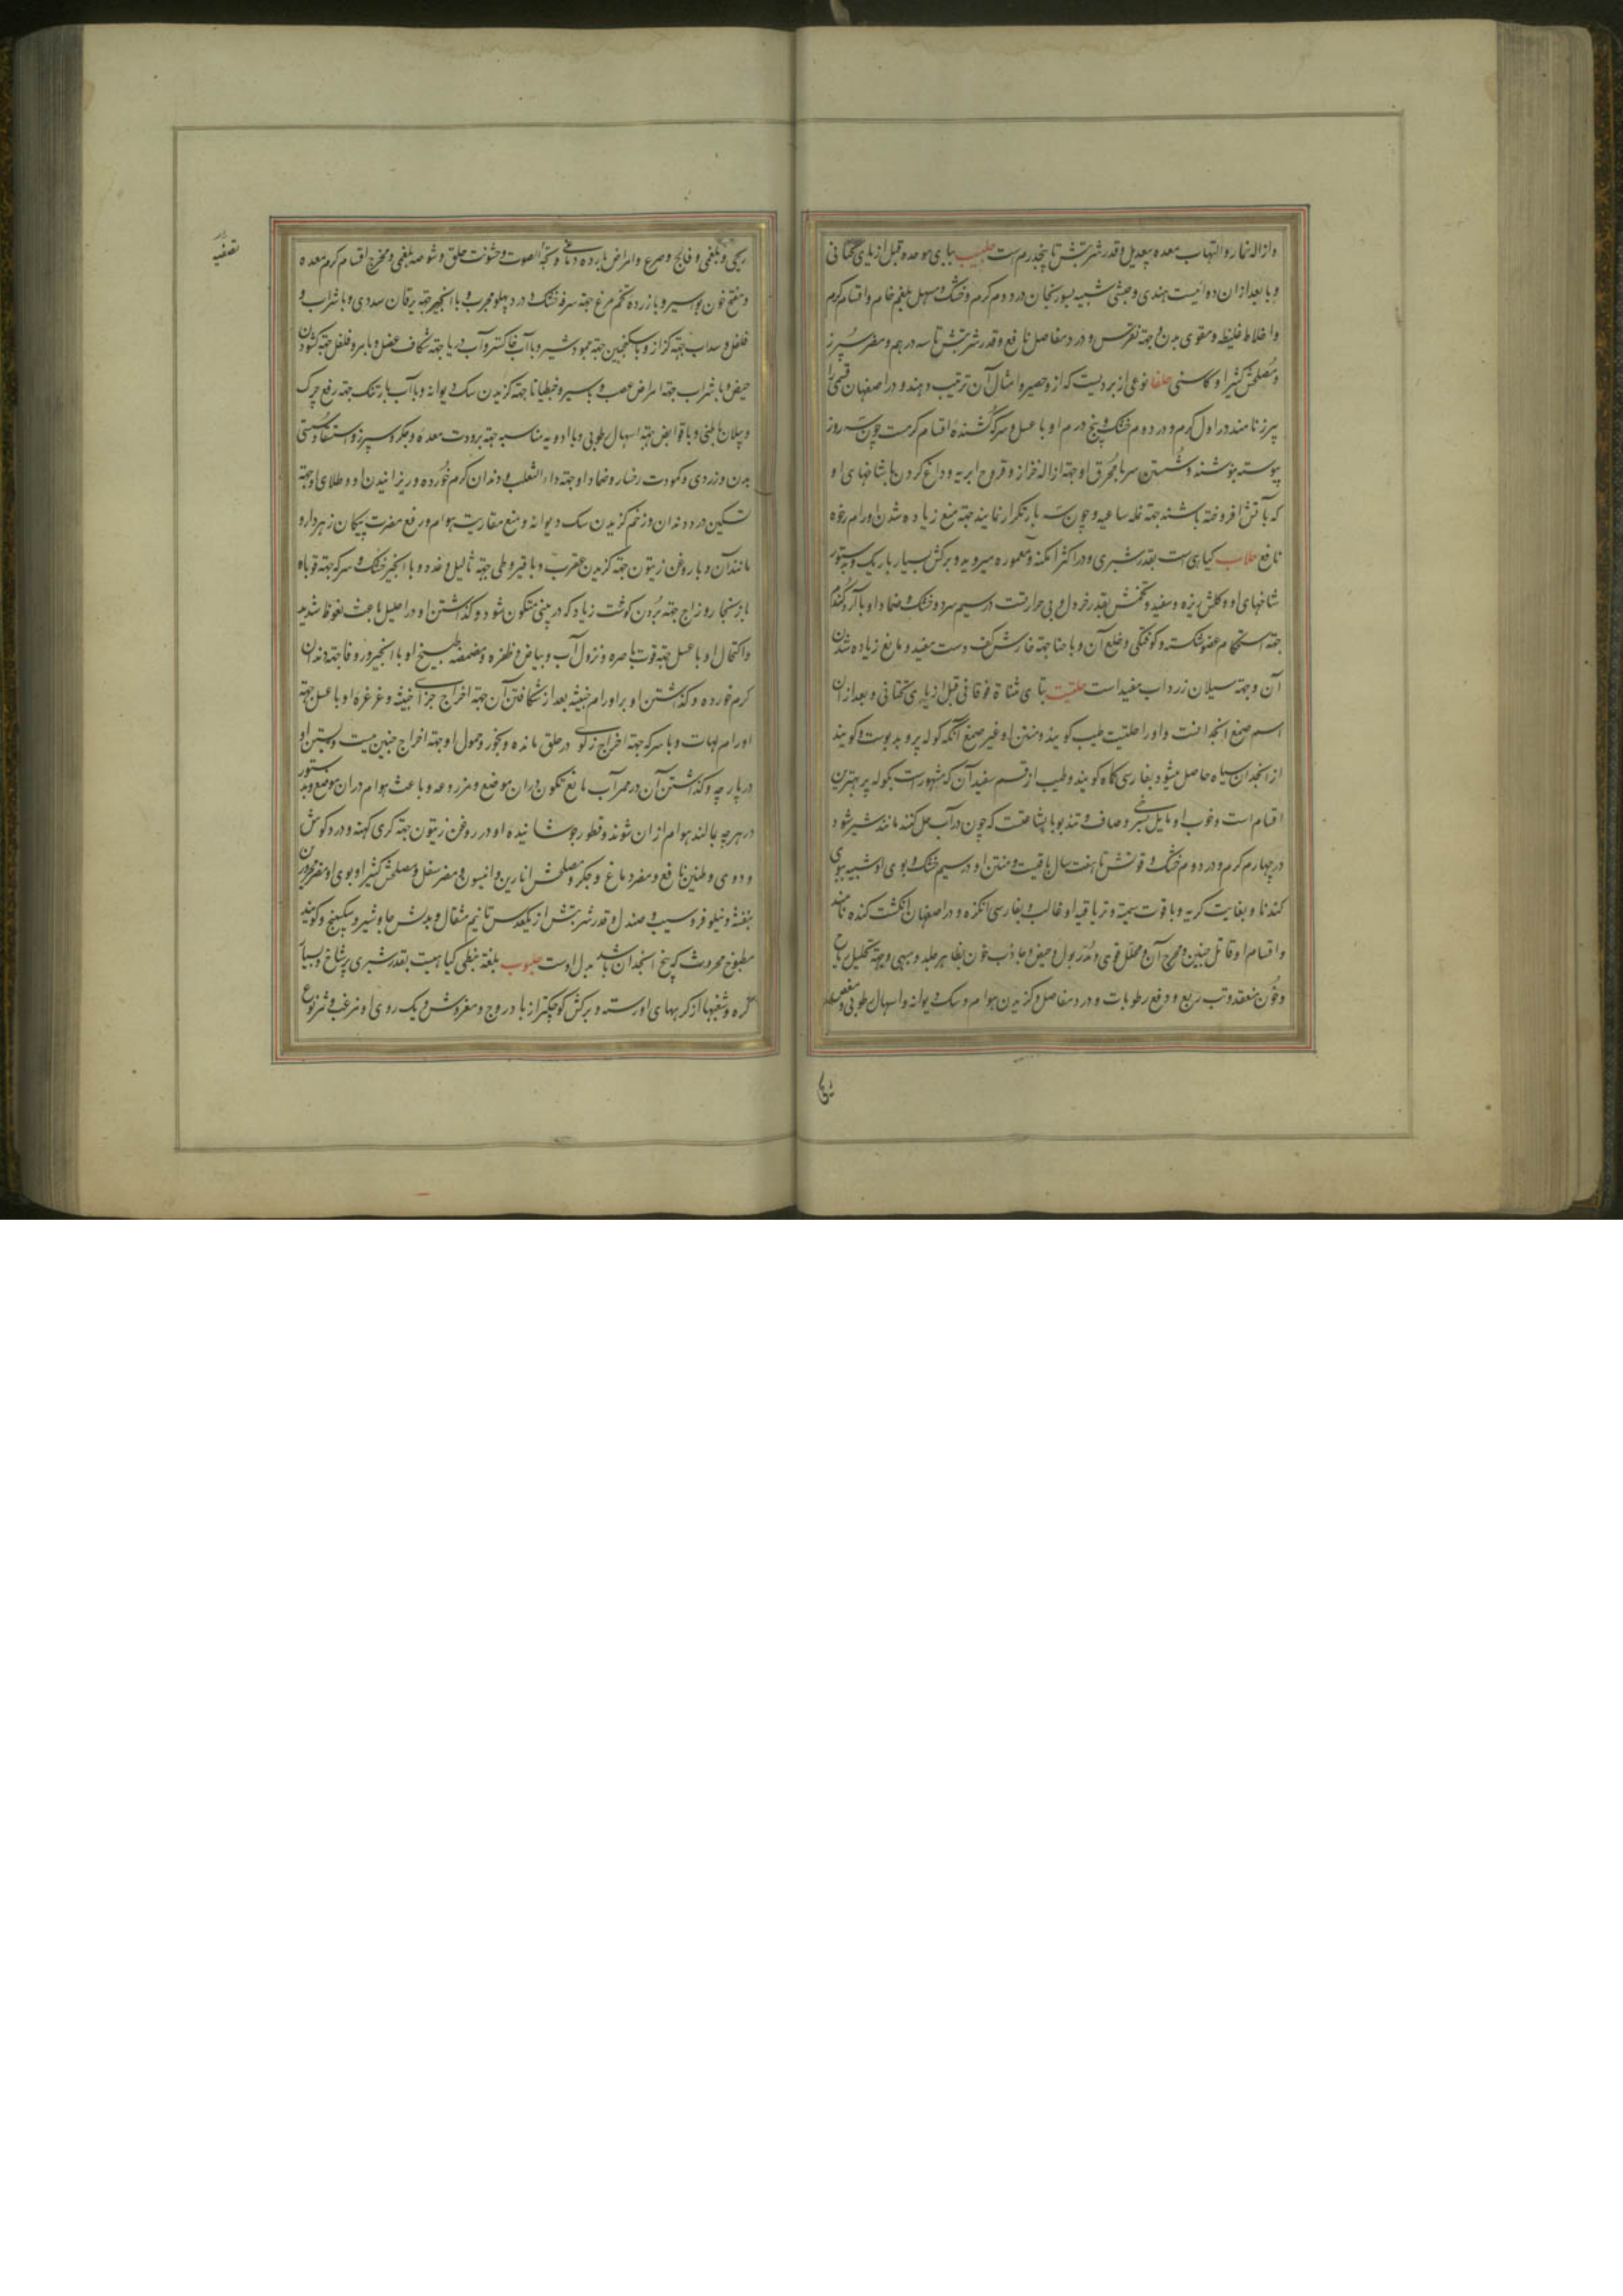 و ازاله خمار و التهاب معده بیعدیل و قدر شربتش تا پنجدرم ست حلبیب ببای موحده قبل از یای تحتانی
و با بعد از ان دوائیست هندی و حبشی شبیه بسورنجان در دوم کرم و خشک و مسهل بلغم خام و اقسام کرم
و اخلاط غلیظه و مقوی بدن و جهته نقرس و درد مفاصل نافع و قدر شربتش تا سه درهم و مضر سپرز
و مصلحش کثیرا و کاسنی حلفا نوعی از بردیست که از و حصیر و امثال آن ترتیب دهند و در اصفهان قسمی را
پرز نامند در اول کرم و در دوم خشک و پنج درم او با عسل و سرکه کشنده اقسام کرمست چون سه روز
پیوسته بنوشند و شستن سر با محرق او جهته ازاله خزاز و قروح ابریه و داغ کردن با شاخهای او
که بآتش افروخته باشند جهته نمله ساعیه و چون سه بار تکرار نمایند جهته منع زیاده شدن اورام رخوه
نافع حلاب کیاهی ست بقدر شبری و در اکثر امکنه معموره میروید و برکش بسیار باریک و بستور
شاخهای او و کلش ریزه و سفید و تخمش بقدر خردل و بی حرارفت در سیم سرد و خشک و ضماد او با آرد گندم
جهته استحکام عضو شکسته و کوفتکی و خلع آن و با حنا جهته خارش کف دست مفید و مانع زیاده شدن
آن و جهته سیلان زرداب مفید است حلتیت بتای مثناة فوقانی قبل از یای تحتانی و بعد از ان
اسم صمغ انجدانست و او را حلتیت طیب کویند و منتن او غیر صمغ انگه کوله پر و بد بوست و کویند
از انجدان سیاه حاصل میشود بفارسی کاه کویند و طیب از قسم سفید آن که مشهور است بکوله پر بهترین
اقسام است و خوب او مایل بسرخی و صاف و تند بو با بشاعتست که چون در آب حل کنند مانند شیر شود
در چهارم کرم و در دوم خشک و قوتش تا هفت سال باقیست و منتن او در سیم خشک و بوی او شبیه ببوی
کندنا و بغایت کریه و با قوت سمیته و تریاقیه او غالب و بفارسی انکزه و در اصفهان انکشت کنده نامند
و اقسام او قاتل جنین و مخرج آن و محلل قوی و مدر بول و حیض و جاذب خون بظاهر جلد و مبهی و جهته تحلیل ریاح
و خون منعقد و تب ربع و دفع رطوبات و درد مفاصل و کزیدن هوام و سک دیوانه و اسهال رطوبی و مغص
ریحی و بلغمی و فالج و صرع و امراض بارده دماغی و بحة الصوت و خشونت حلق و شوصه بلغمی و مخرج اقسام کرم معده
و مفتح خون بواسیر و با زرده تخم مرغ جهته سرفه خشک و درد پهلو مجرب و با انجیر جهته یرقان سددی و با شراب و
فلفل و سداب جهته کزاز و با سکنجبین جهته جمود شیر و با آب خاکستر و آب دریا جهته شکاف عضل و با مر و فلفل جهته کشودن
حیض و با شراب جهته امراض عصب و بواسیر و جنطیانا جهته کزیدن سک دیوانه و با آب بارتنک جهته رفع چرک
و سیلان باطنی و با قوابض جهته اسهال رطوبی و با ادویه مناسبه جهته برودت معده و جکر و سپرز و استسقا و سستی
بدن و زردی و کمودت رخسار و ضماد او جهته داء الثعلب و دندان کرم خورده و ریزانیدن او و طلای او جهته
تسکین درد دندان و زخم کزیدن سک دیوانه و منع مقاربت هوام و رفع مضرت پیکان زهردار و
مانند آن و با روغن زیتون جهته کزیدن عقرب و با قیروطی جهته ثالیل و غدد و با انجیر خشک و سرکه جهته قوبا و
با زنجار و زاج جهته بردن کوشت زیاد که در بینی متکون شود و کذاشتن او در احلیل باعث نعوظ شدید
و اکتحال او با عسل جهته قوت باصره و نزول آب و بیاض و ظفره و مضمضه طبیخ او با انجیر و زوفا جهته دندان
کرم خورده و کذاشتن او بر اورام خبیثه بعد از شکافتن آن جهته اخراج اجزای خبیثه و غرغره او با عسل جهته
اورام لهات و با سرکه جهته اخراج زلوی در حلق مانده و بخور و حمول او جهته اخراج جنین میت و بستن او
در پارچه و کذاشتن آن در ممر آب مانع تکون در ان موضع و مزرعه و باعث هوام در ان موضع و بدستور
در هر چه بمالند هوام از ان نفوذ و قطور جوشانیده او در روغن زیتون جهته کری کهنه و درد کوش
و دوی و طنین نافع و مضر دماغ و جکر و مصلحش انارین و انیسون و مضر سفل و مصلحش کثیرا و بوی او مضر محرورین
بنفشه و نیلوفر و سیب و صندل و قدر شربتش از یکعدس تا نیم مثقال و بدلش جاوشیر و سکبینج و کویند
مطبوخ محروث که بیخ انجدان باشد بدل اوست حلبوب بلغته نبطی کیاهیست بقدر شبری پر شاخ و بسیار
کره و شعبها از کرههای او رسته و برکش کوچکتر از بادروج و مفروش و یک روی او مزغب و ثمرش نوع
تصفیه